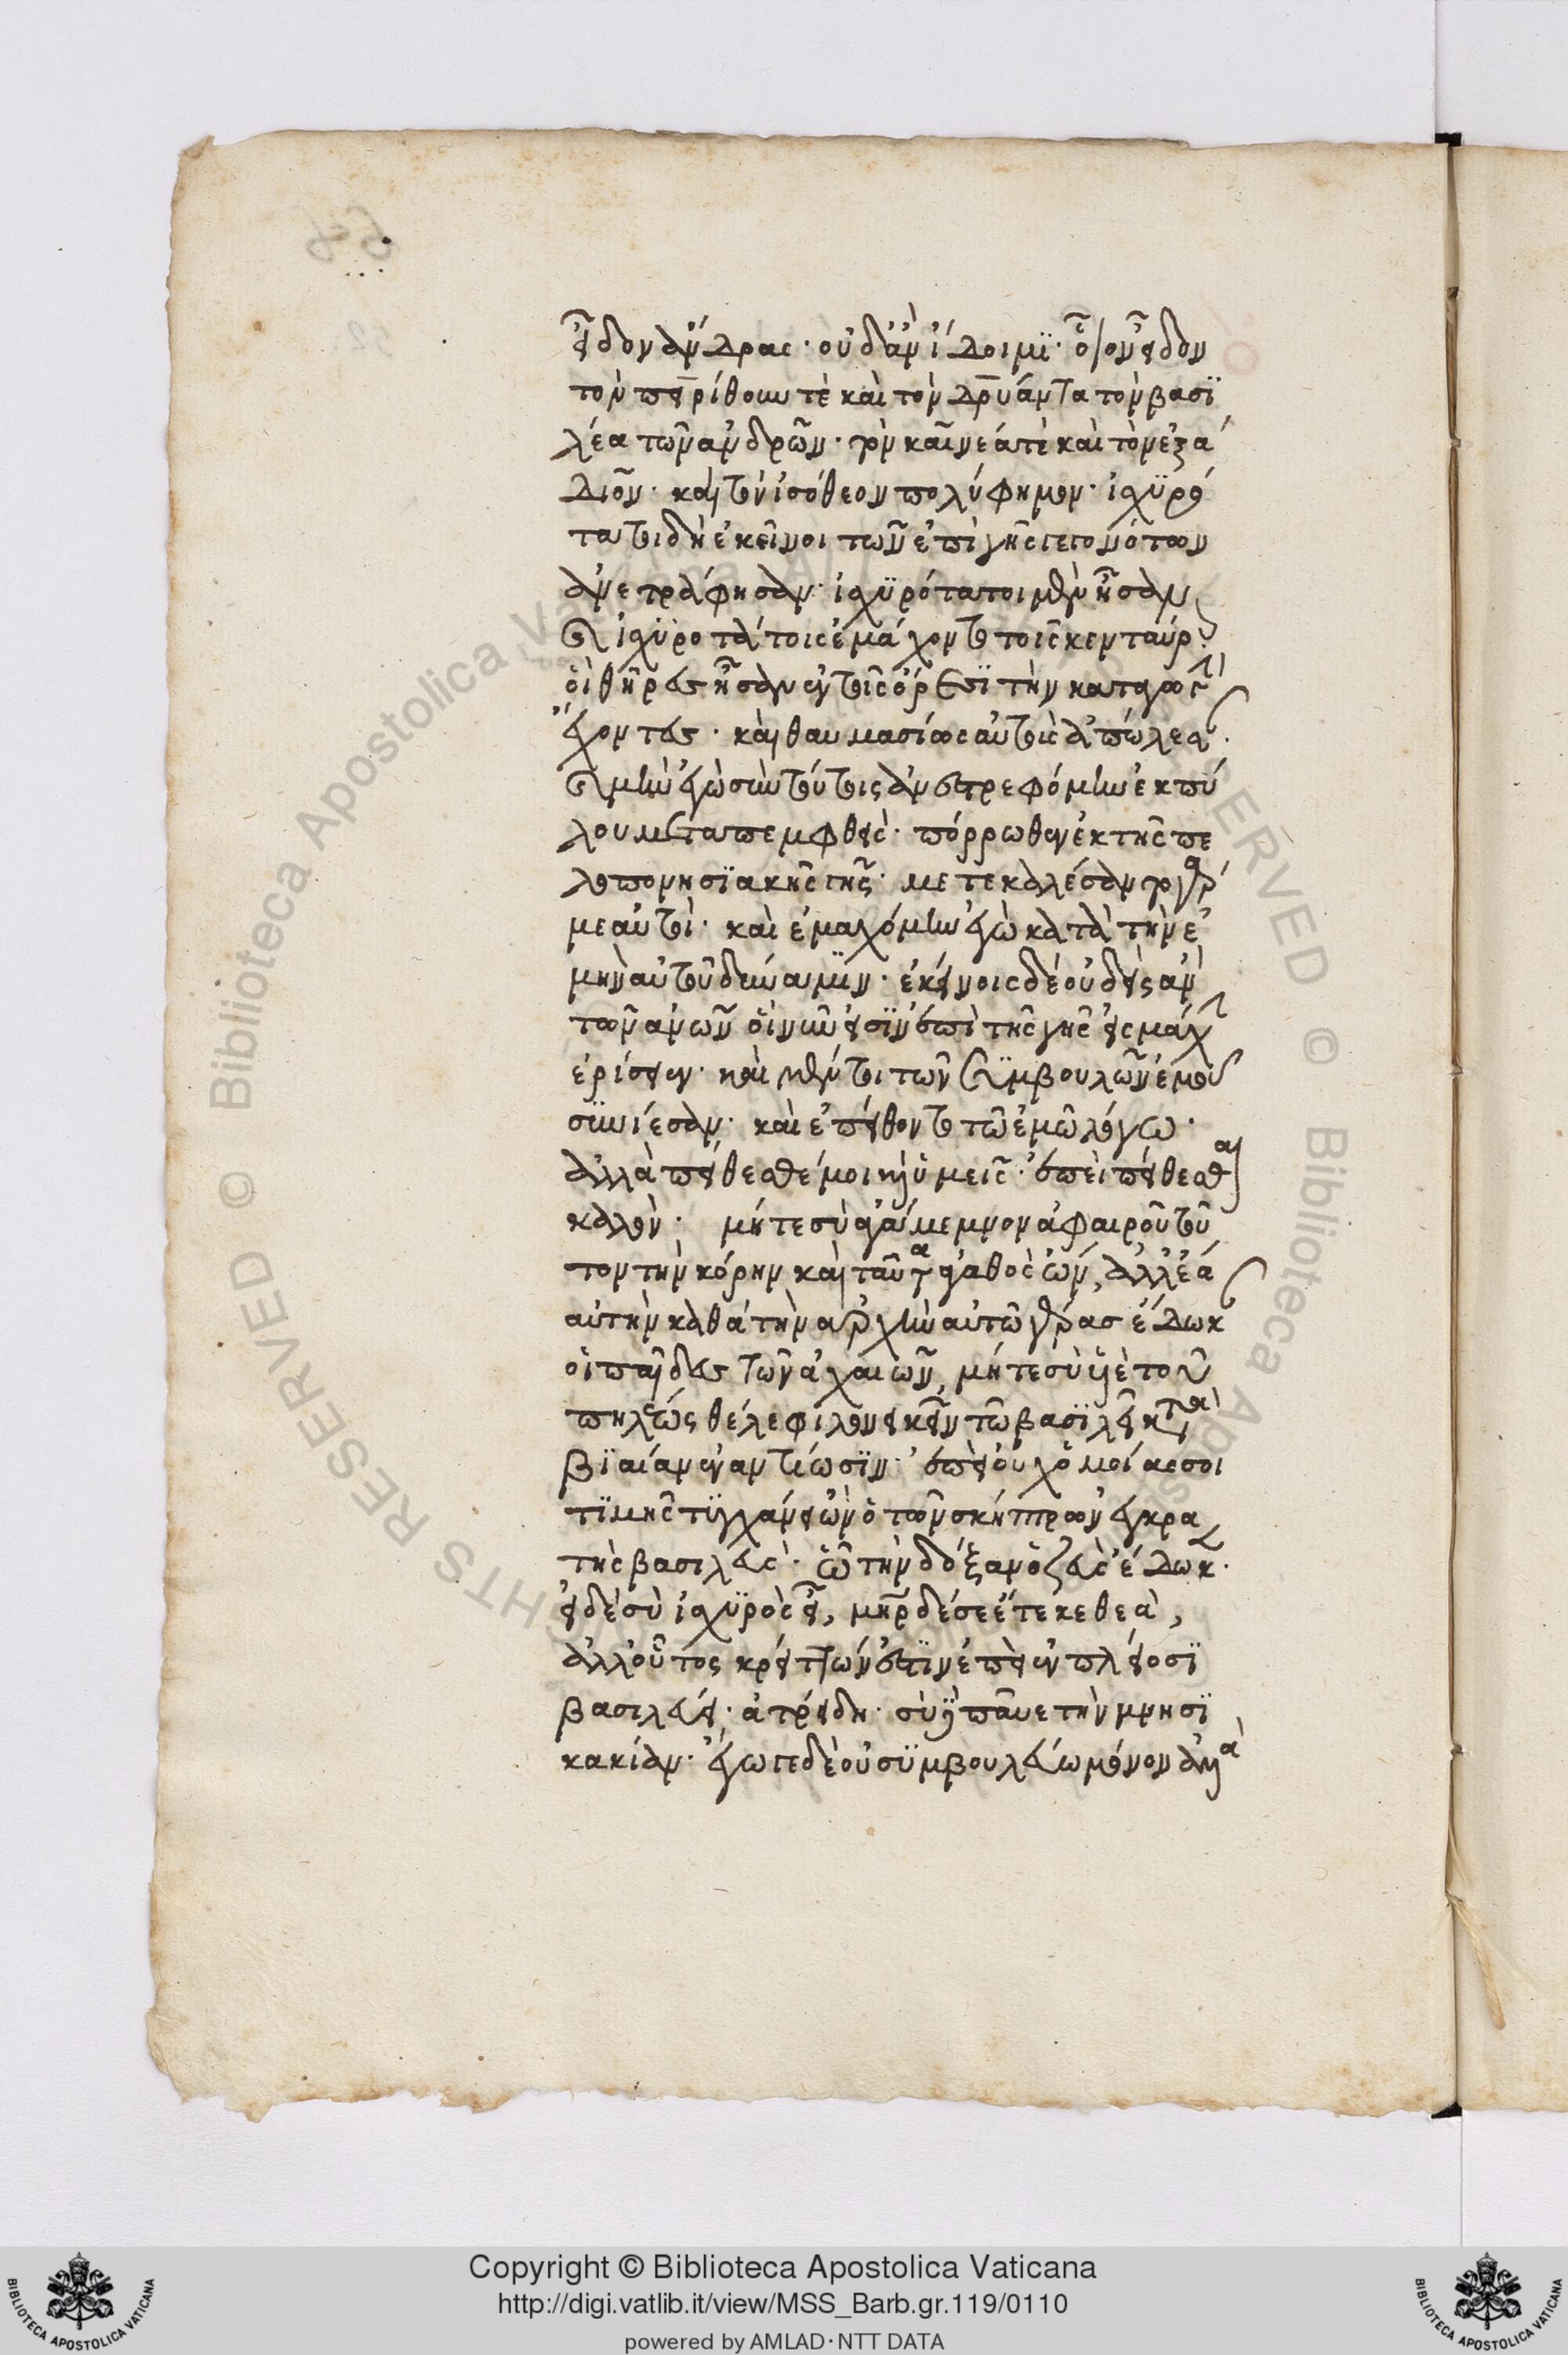 εἶδον ἄνδρας · οὐδ' ἂν ἴδοιμϊ · οἷον εἶδον
τὸν πειρίθουν τὲ καὶ τὸν δρῡάντα τὸν βασϊ
λέα τῶν ἀνδρῶν · τὸν καινέα τὲ καὶ τὸν ἐξά
διον · καὶ τὸν ἰσόθεον πολύφημον · ἰσχϋρό
τατοι δὴ ἐκεῖνοι τῶν ἐπὶ γῆς γεγονότων
ἀνετράφησαν · ἰσχϋρότατοι μὲν ἦσαν
καὶ ἰσχϋροτάτοις ἐμάχοντο τοῖς κενταύροις
οἳ θῆρες ἦσαν ἐν τοῖς ὄρεσϊ τὴν καταγωγὴν
ἔχοντες · καὶ θαυμασίως αὐτοὺς ἀπώλεσαν ·
καὶ μὴν ἐγὼ σὺν τούτοις ἀνεστρεφόμην ἐκ πύ
λου μεταπεμφθεὶς · πόρρωθεν ἐκ τῆς πε
λοπονησϊακῆς γῆς · μετεκαλέσαντο γάρ
με αὐτοὶ · καὶ ἐμαχόμην ἐγὼ κατὰ τὴν ἐ
μὴν αὐτοῦ δύναμϊν · ἐκείνοις δὲ οὐδεὶς ἂν
τῶν ἀνων οἳ νῦν εἰσϊν ἐπὶ τῆς γῆς εἰς μάχην
ἐρίσειεν · καὶ μέντοι τῶν συμβουλῶν ἐμοῦ
σϋνίεσαν · καὶ ἐπείθοντο τῶ ἐμῶ λόγω ·
ἀλλὰ πείθεσθέ μοι καὶ ὑμεῖς · ἐπεὶ πείθεσθαι
καλὸν · μήτε σὺ ἀγάμεμνον ἀφαιροῦ τοῦ
τον τὴν κόρην καὶ ταῦτα ἀγαθὸς ὢν, ἀλλ' ἔα
αὐτὴν καθὰ τὴν ἀρχὴν αὐτῶ γέρας ἔδωκαν
οἱ παῖδες τῶν ἀχαιῶν, μήτε σὺ υἱὲ τοῦ
πηλέως θέλε φιλονεικεῖν τῶ βασϊλεῖ κατὰ
βϊαίαν ἐναντίωσϊν · ἐπεὶ οὐχ ὁμοίας σοι
τϊμῆς τϋγχάνει ὢν ὁ τῶν σκήπτρων ἐγκρα
τὴς βασιλεὺς · ᾧ τὴν δόξαν ὁ ζεὺς ἔδωκεν ·
εἰ δὲ σὺ ἰσχϋρὸς εἶ, μηρ δέ σε ἔτεκε θεὰ,
ἀλλ' οὗτος κρείττων ἐστϊν ἐπεὶ ἐν πλείοσϊ
βασιλεύει · ἀτρείδη · σὺ δὲ παῦε τὴν μνησϊ
κακίαν · ἔγωγε δὲ οὐ σϋμβουλεύω μόνον ἀλλὰ